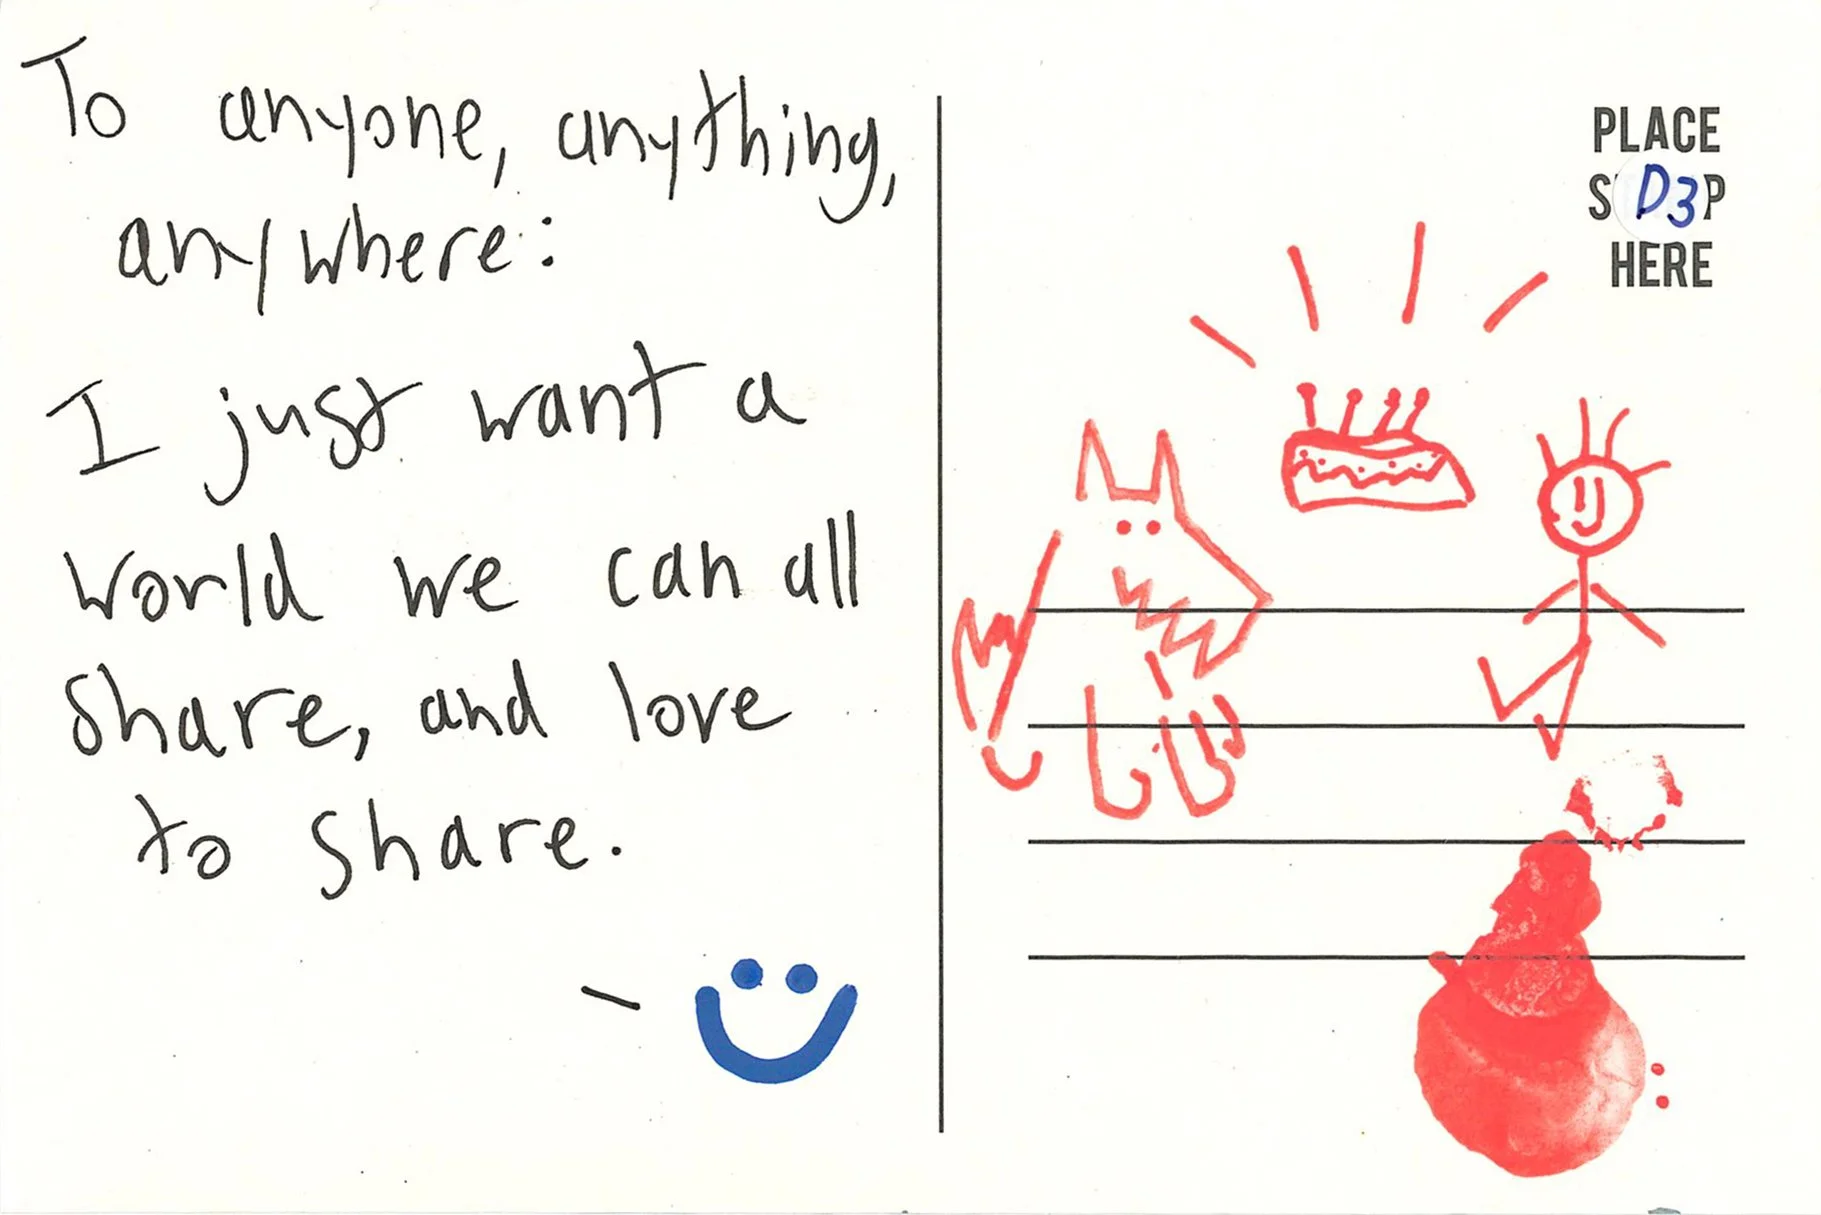 To anyone, anything,
anywhere:
I just want a
world we can all
share, and love
to share.
PLACE
S D3 P
HERE